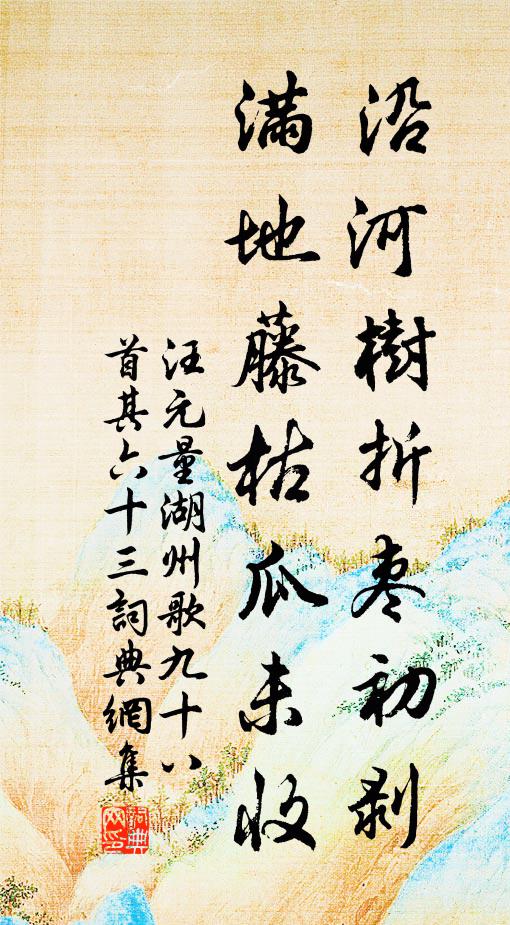 沿河樹折棗初剥
滿地藤枯瓜未收
汪元量湖州歌九十八
首其六十三詞典網集
詞典網印